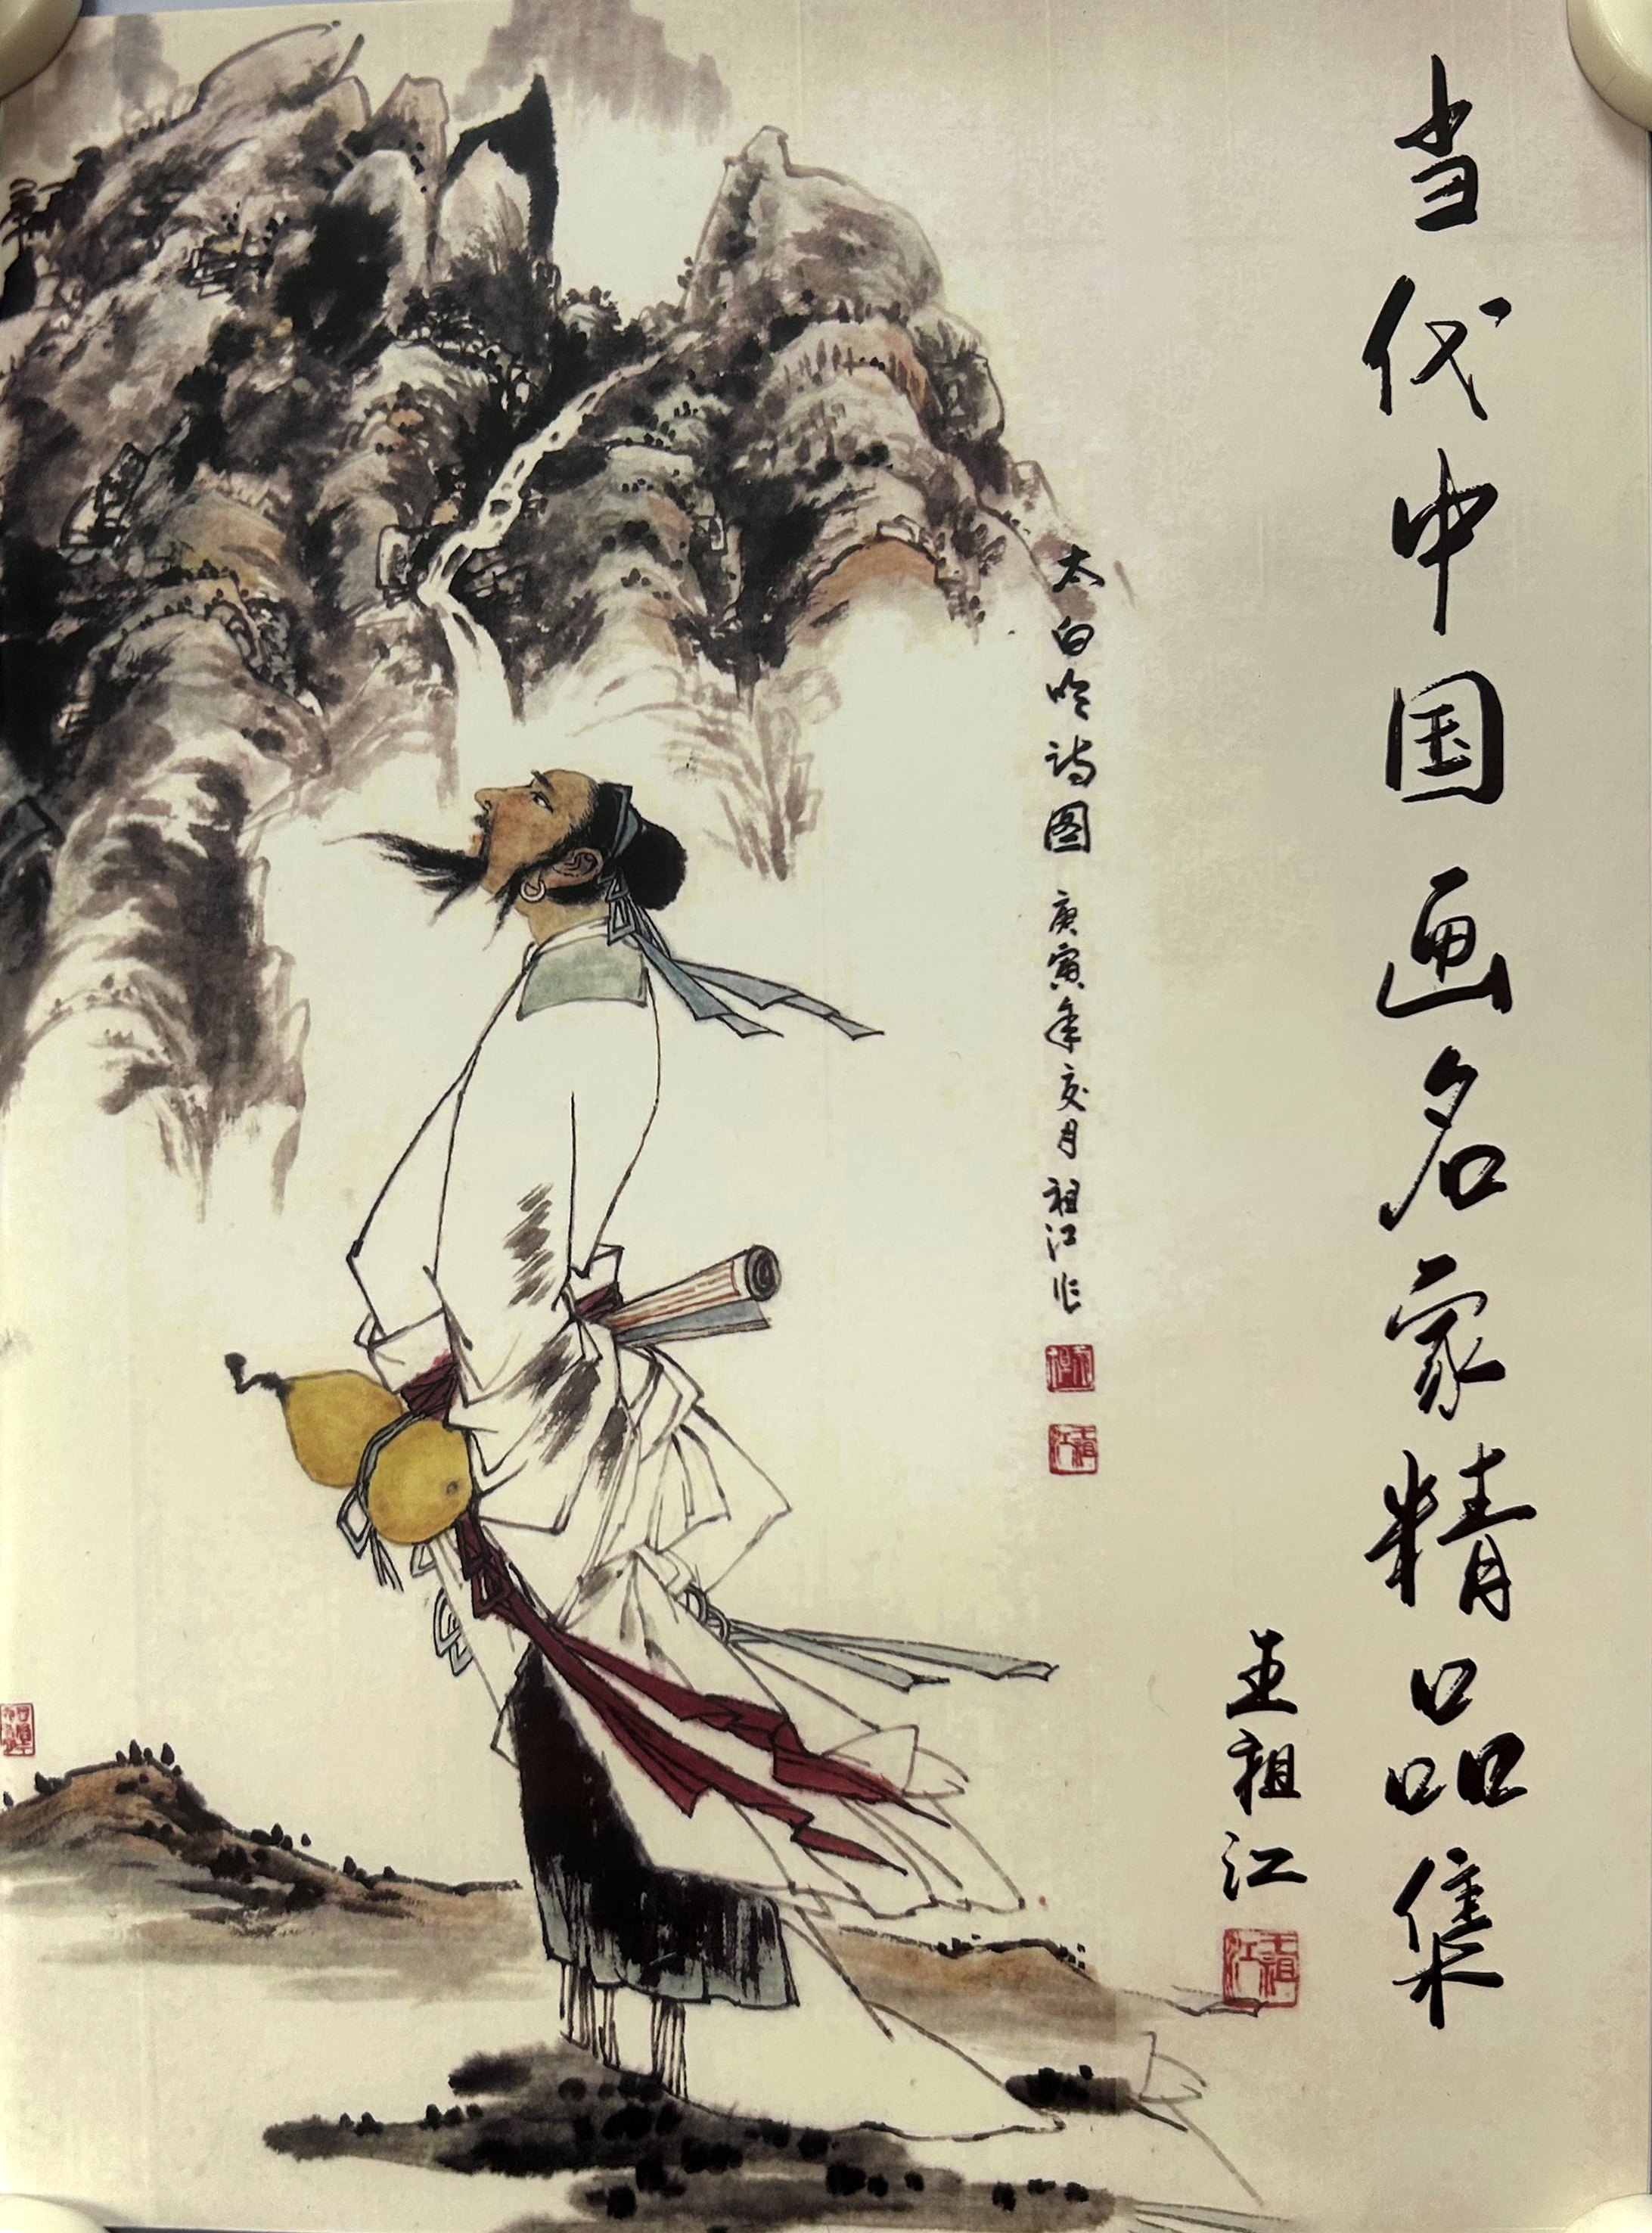 当代中国画名家精品集
王祖江
太白吟诗图 庚寅年亥月祖江作